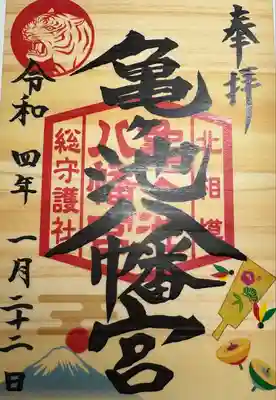 奉拝
亀ヶ池八幡宮
北相模
亀ヶ池
八幡宮
総守護社
令和四年 一月二十二日